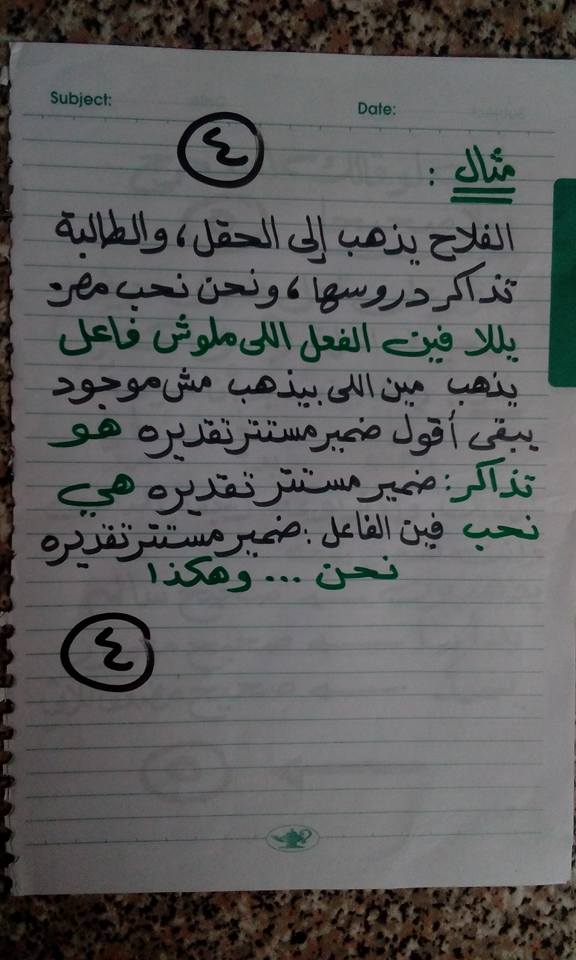 Subject:
Date:
٤
مثال :
الفلاح يذهب إلى الحقل، والطالبة
تذاكر دروسها، ونحن نحب مصر.
يللا فين الفعل اللى ملوش فاعل
يذهب مين اللى بيذهب مش موجود
يبقى أقول ضمير مستتر تقديره هو
تذاكر: ضمير مستتر تقديره هي
نحب فين الفاعل : ضمير مستتر تقديره
نحن ... وهكذا
٤